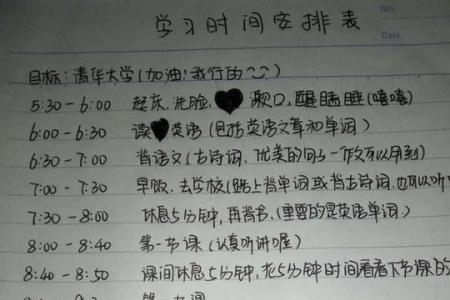 No.
Date
学习时间安排表
目标:清华大学(加油!我行的~)
5:30-6:00 起床、洗脸、漱口,醒瞌睡(嘻嘻)
6:00-6:30 读英语(包括英语文章和单词)
6:30-7:00 背语文(古诗词、优美的句子作文可以用到)
7:00-7:30 早饭、去学校(路上背单词或背古诗词,也可以听
7:30-8:00 休息5分钟,再背书,(重要的是英语单词)
8:00-8:40 第一节课(认真听讲喔)
8:40-8:50 课间休息5分钟,花5分钟时间看看下节课的
第二节课